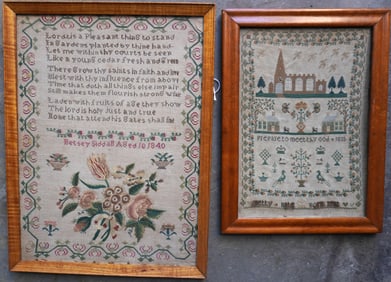 Lord tis a Pleasant thing to stand
In Gardens planted by thine hand
Let me within thy courts be seen
Like a young cedar fresh and
There Grow thy saints in faith and
Blest with thy influence from above
Time that doth all things else impair
Still makes them flourish strong
Laden with fruits of age they show
The Lord is holy Just and true
None that attend his Gates shall
Betsey Siddall Aged 10 1840
Prepare to meet thy God